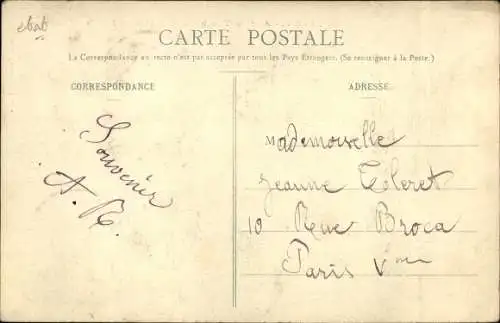 ebab
CARTE POSTALE
La Correspondance au recto n'est pas acceptée par tous les Pays Étrangers. (Se renseigner à la Poste.)
CORRESPONDANCE
Souvenir
A. R.
ADRESSE
Mademoiselle
Jeanne Toleret
10 Rue Broca
Paris Vme